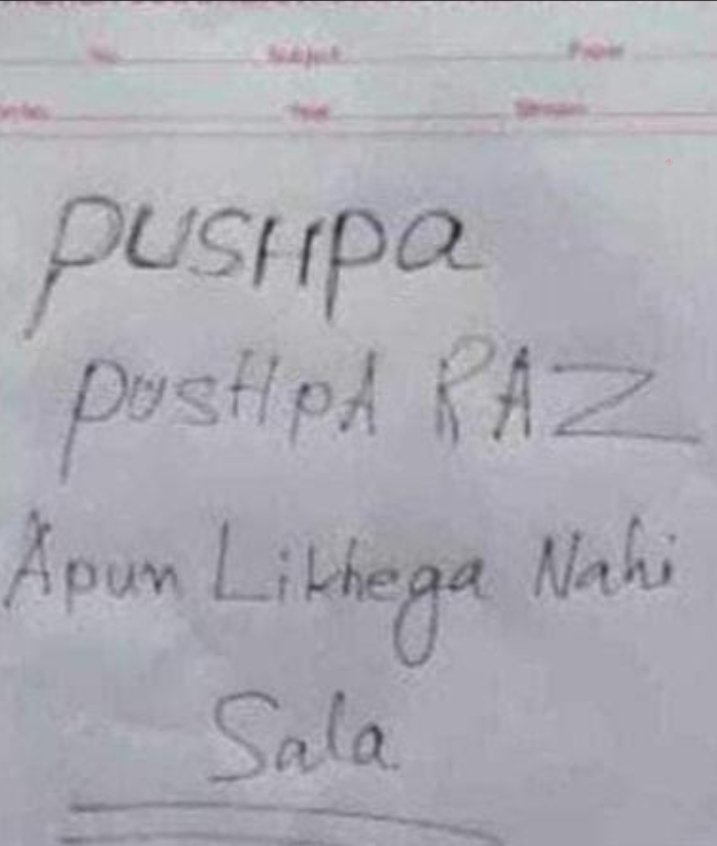 No. Subject Paper
Year
PUSHpa
PUSHPA RAZ
Apun Likhega Nahi
Sala